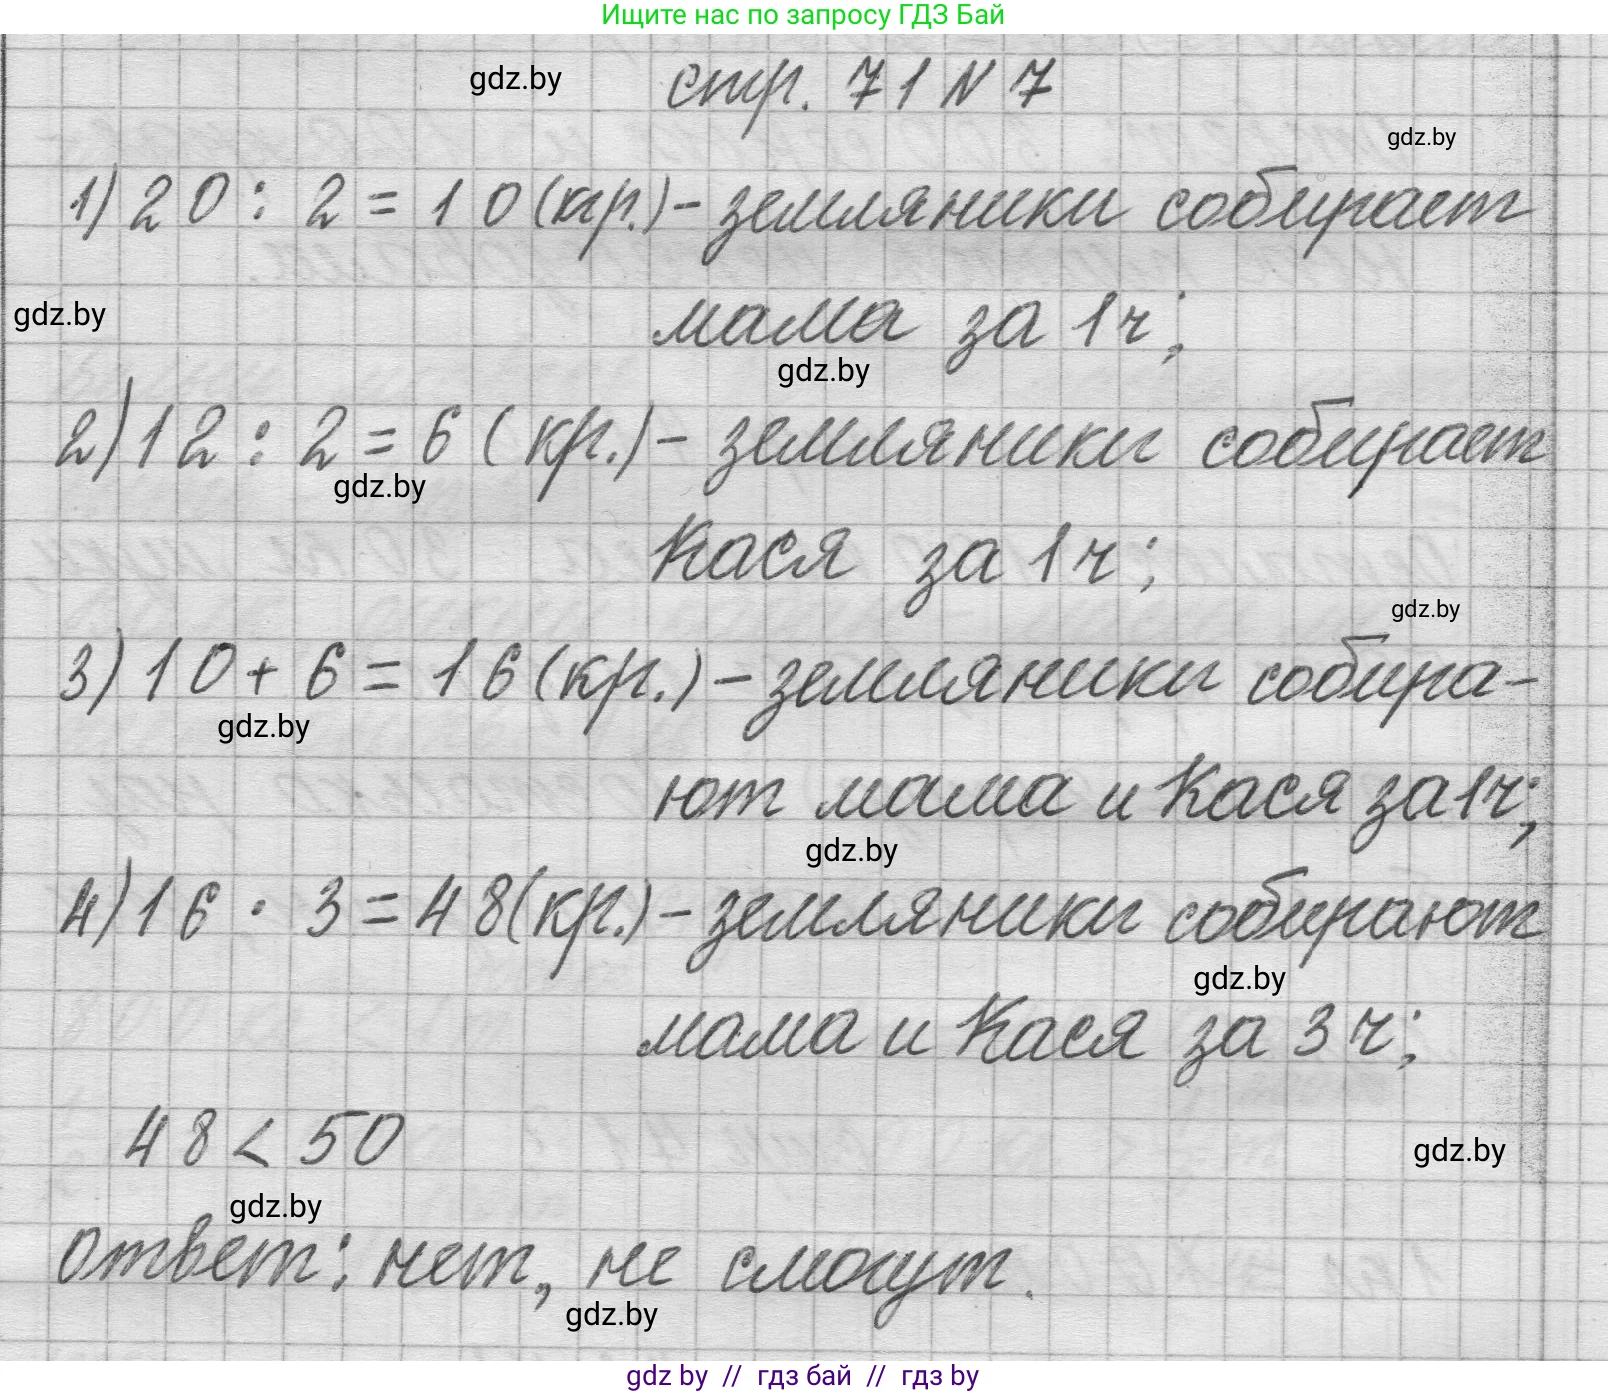 Ищите нас по запросу ГДЗ Бай
gdz.by
стр. 71 N 7
gdz.by
1) 20 : 2 = 10 (кр.) - земляники собирает
gdz.by
мама за 1ч;
gdz.by
2) 12 : 2 = 6 (кр.) - земляники собирает
gdz.by
Кася за 1ч;
gdz.by
3) 10 + 6 = 16 (кр.) - земляники собира-
gdz.by
ют мама и Кася за 1ч;
gdz.by
4) 16 · 3 = 48 (кр.) - земляники собирают
gdz.by
мама и Кася за 3ч;
48 < 50
gdz.by
gdz.by
ответ: нет, не смогут.
gdz.by
gdz by // гдз бай // гдз by